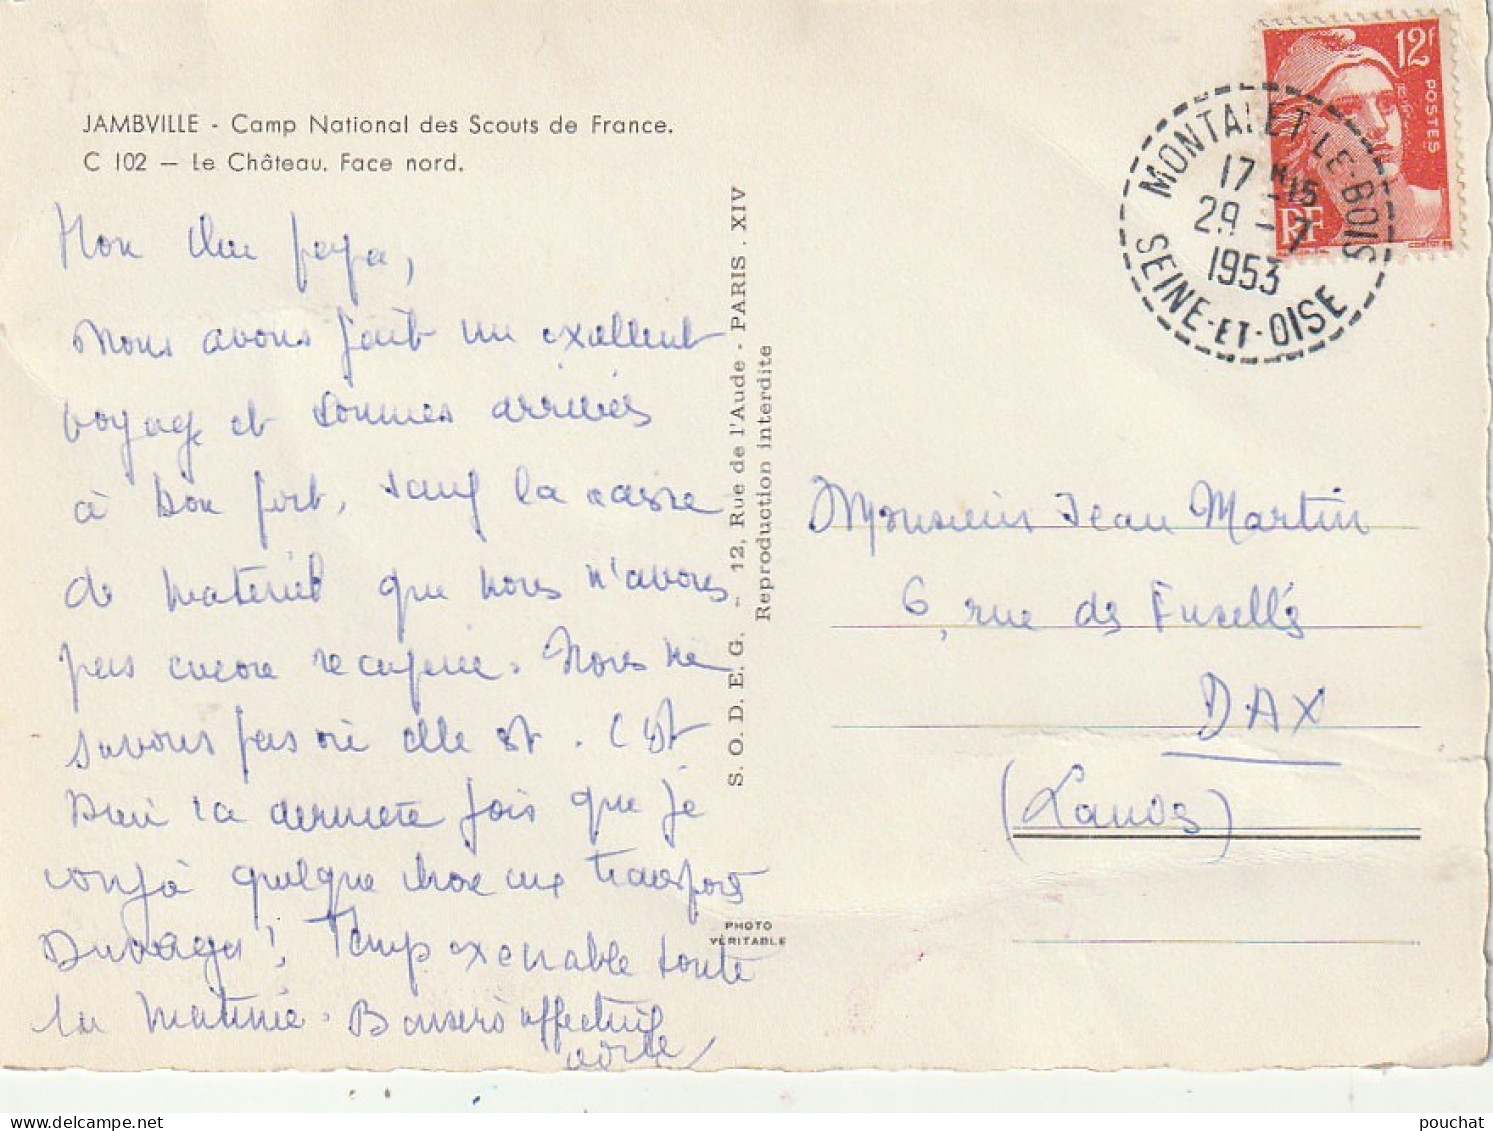 JAMBVILLE - Camp National des Scouts de France.
C 102 — Le Château. Face nord.
Mon cher papa,
Nous avons fait un excellent
voyage et sommes arrivés
à bon port, sauf la caisse
de matériel que nous n'avons
pas encore recupérée. Nous ne
savons pas où elle est. C'est
bien la dernière fois que je
confie quelque chose aux transports
! Temps exécrable toute
la matinée. Baisers affectueux
S. O. D. E. G. — 12, Rue de l'Aude - PARIS. XIV
Reproduction interdite
PHOTO
VÉRITABLE
12F
POSTES
RF
MONTALET-LE-BOIS
17H15
29 - 7
1953
SEINE-ET-OISE
Monsieur Jean Martin
6, rue des Fusillés
DAX
(Landes)
pouchat